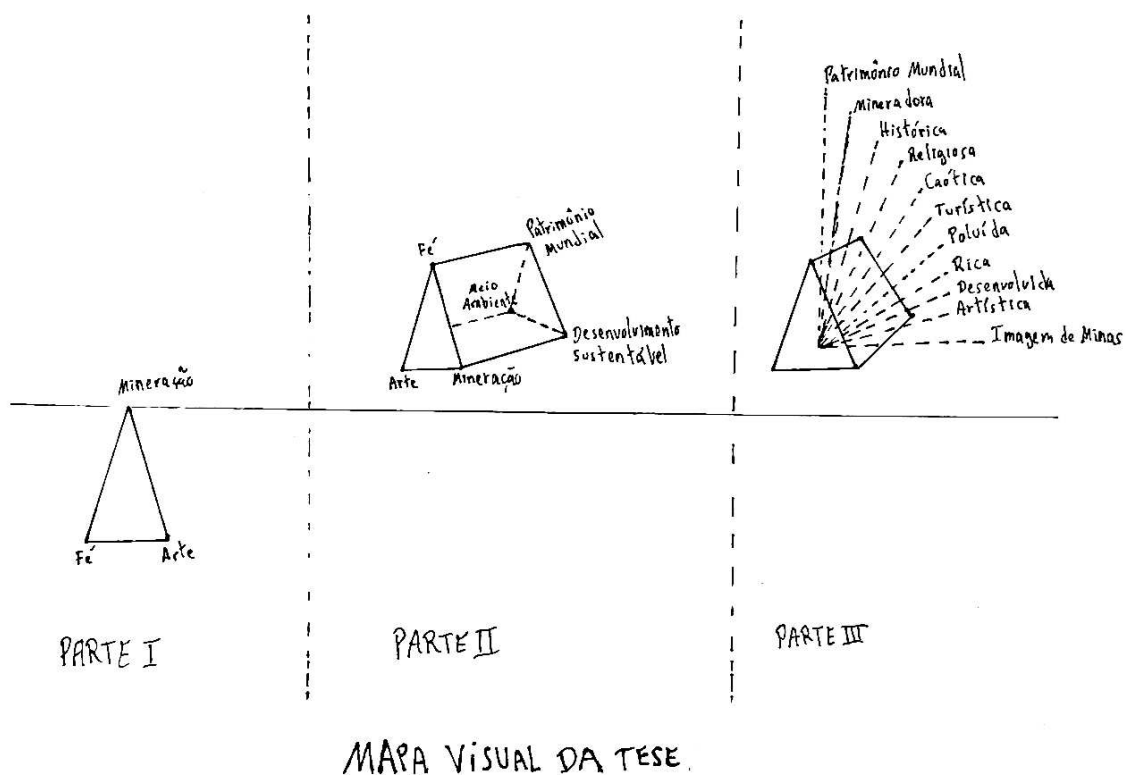 Mineração
Fé
Arte
PARTE I
Fé
Patrimônio
Mundial
Meio
Ambiente
Desenvolvimento
Sustentável
Arte
Mineração
PARTE II
Patrimônio Mundial
Mineradora
Histórica
Religiosa
Caótica
Turística
Poluída
Rica
Desenvolvida
Artística
Imagem de Minas
PARTE III
MAPA VISUAL DA TESE.